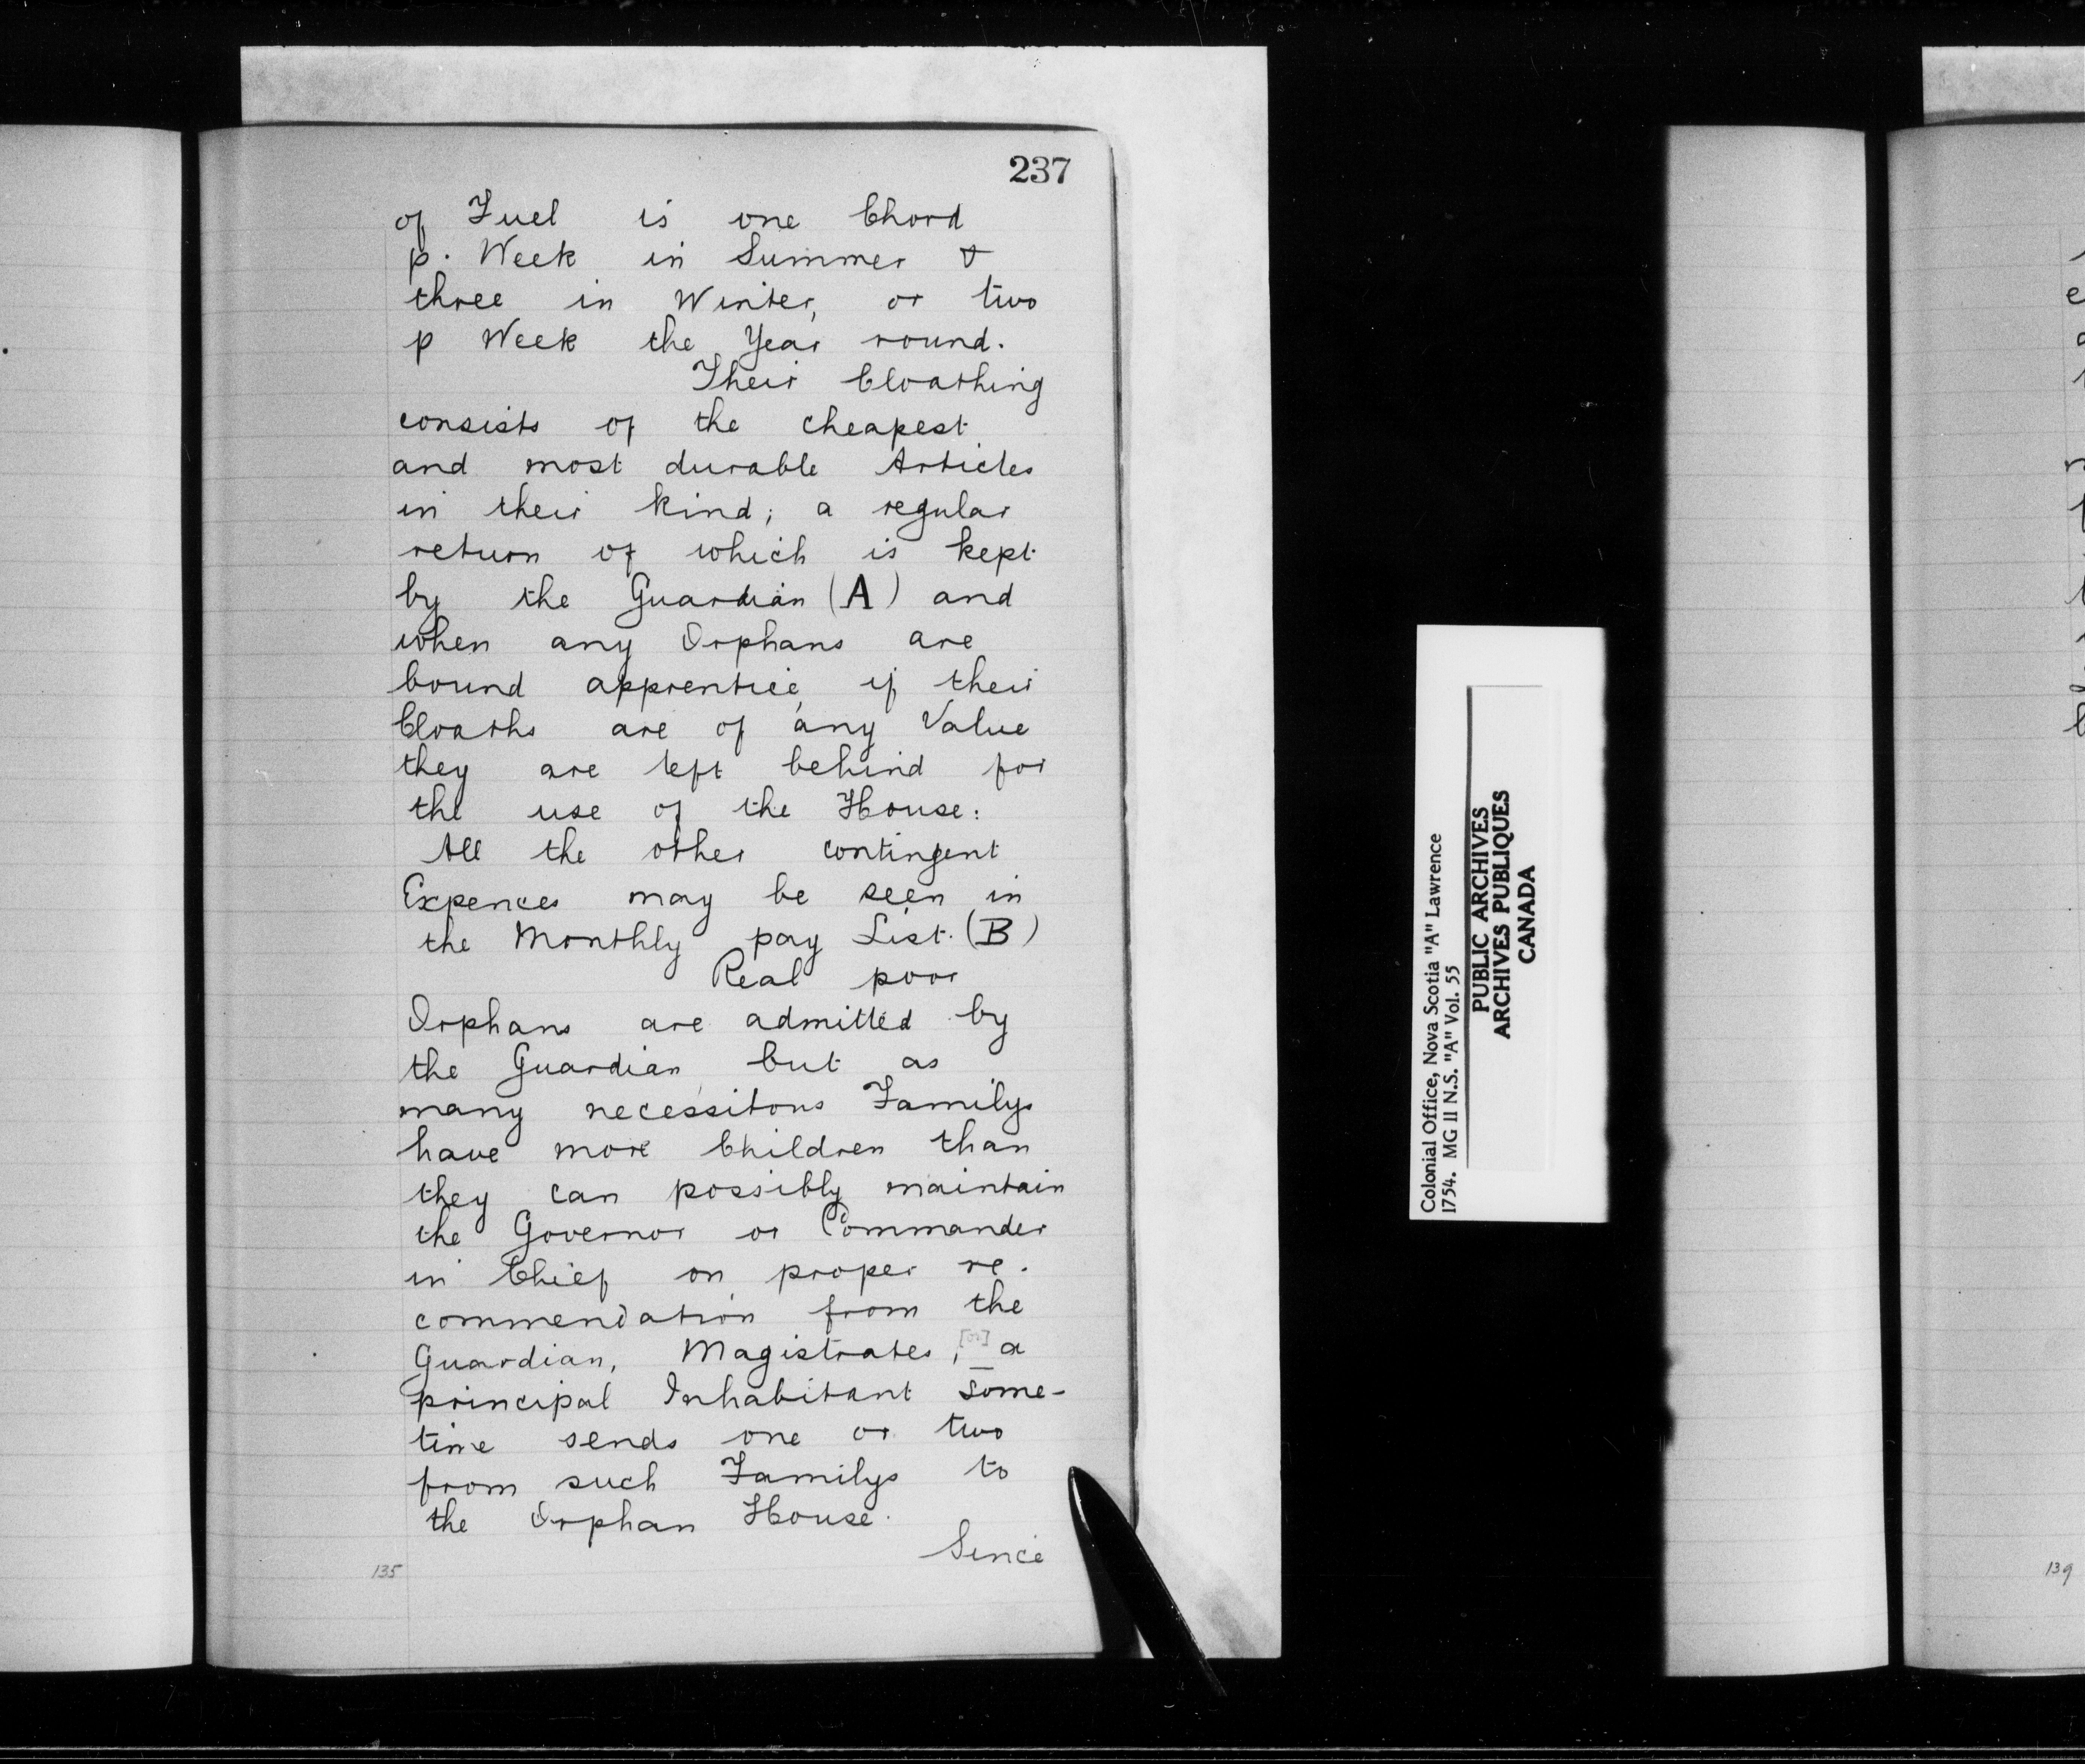 237
of Fuel is one Chord
p. Week in Summer &
three in Winter, or two
p Week the Year round.
Their Cloathing
consists of the cheapest
and most durable Articles
in their kind; a regular
return of which is kept
by the Guardian (A) and
when any Orphans are
bound apprentice, if their
Cloaths are of any Value
they are left behind for
the use of the House:
All the other contingent
Expences may be seen in
the Monthly pay List. (B)
Real poor
Orphans are admitted by
the Guardian, but as
many necessitous Familys
have more Children than
they can possibly maintain
the Governor or Commander
in Chief on proper re-
commendation from the
Guardian, Magistrates, [or] a
principal Inhabitant some-
time sends one or two
from such Familys to
the Orphan House.
Since
135
Colonial Office, Nova Scotia "A" Lawrence
1754. MG 11 N.S. "A" Vol. 55
PUBLIC ARCHIVES
ARCHIVES PUBLIQUES
CANADA
139